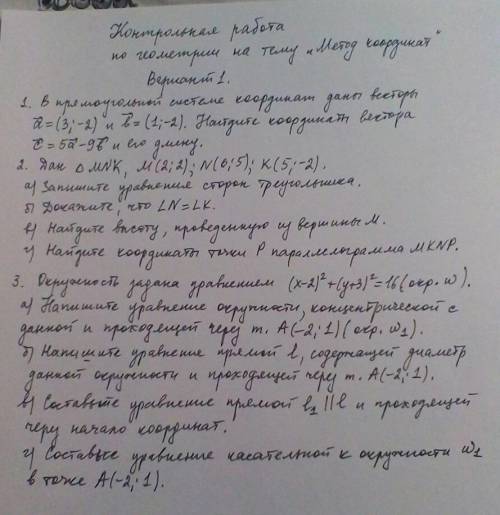 Контрольная работа
по геометрии на тему „Метод координат"
Вариант 1.
1. В прямоугольной системе координат даны векторы
a⃗=(3;-2) и b⃗=(1;-2). Найдите координаты вектора
c⃗=5a⃗-9b⃗ и его длину.
2. Дан △MNK, M(2;2); N(6;5); K(5;-2).
а) Запишите уравнения сторон треугольника.
б) Докажите, что ∠N=∠K.
в) Найдите высоту, проведенную из вершины M.
г) Найдите координаты точки P параллелограмма MKNP.
3. Окружность задана уравнением (x-2)²+(y+3)²=16 (окр. ω).
а) Напишите уравнение окружности, концентрической с
данной и проходящей через т. A(-2;1) (окр. ω₁).
б) Напишите уравнение прямой l, содержащей диаметр
данной окружности и проходящей через т. A(-2;1).
в) Составьте уравнение прямой l₁ || l и проходящей
через начало координат.
г) Составьте уравнение касательной к окружности ω₁
в точке A(-2;1).